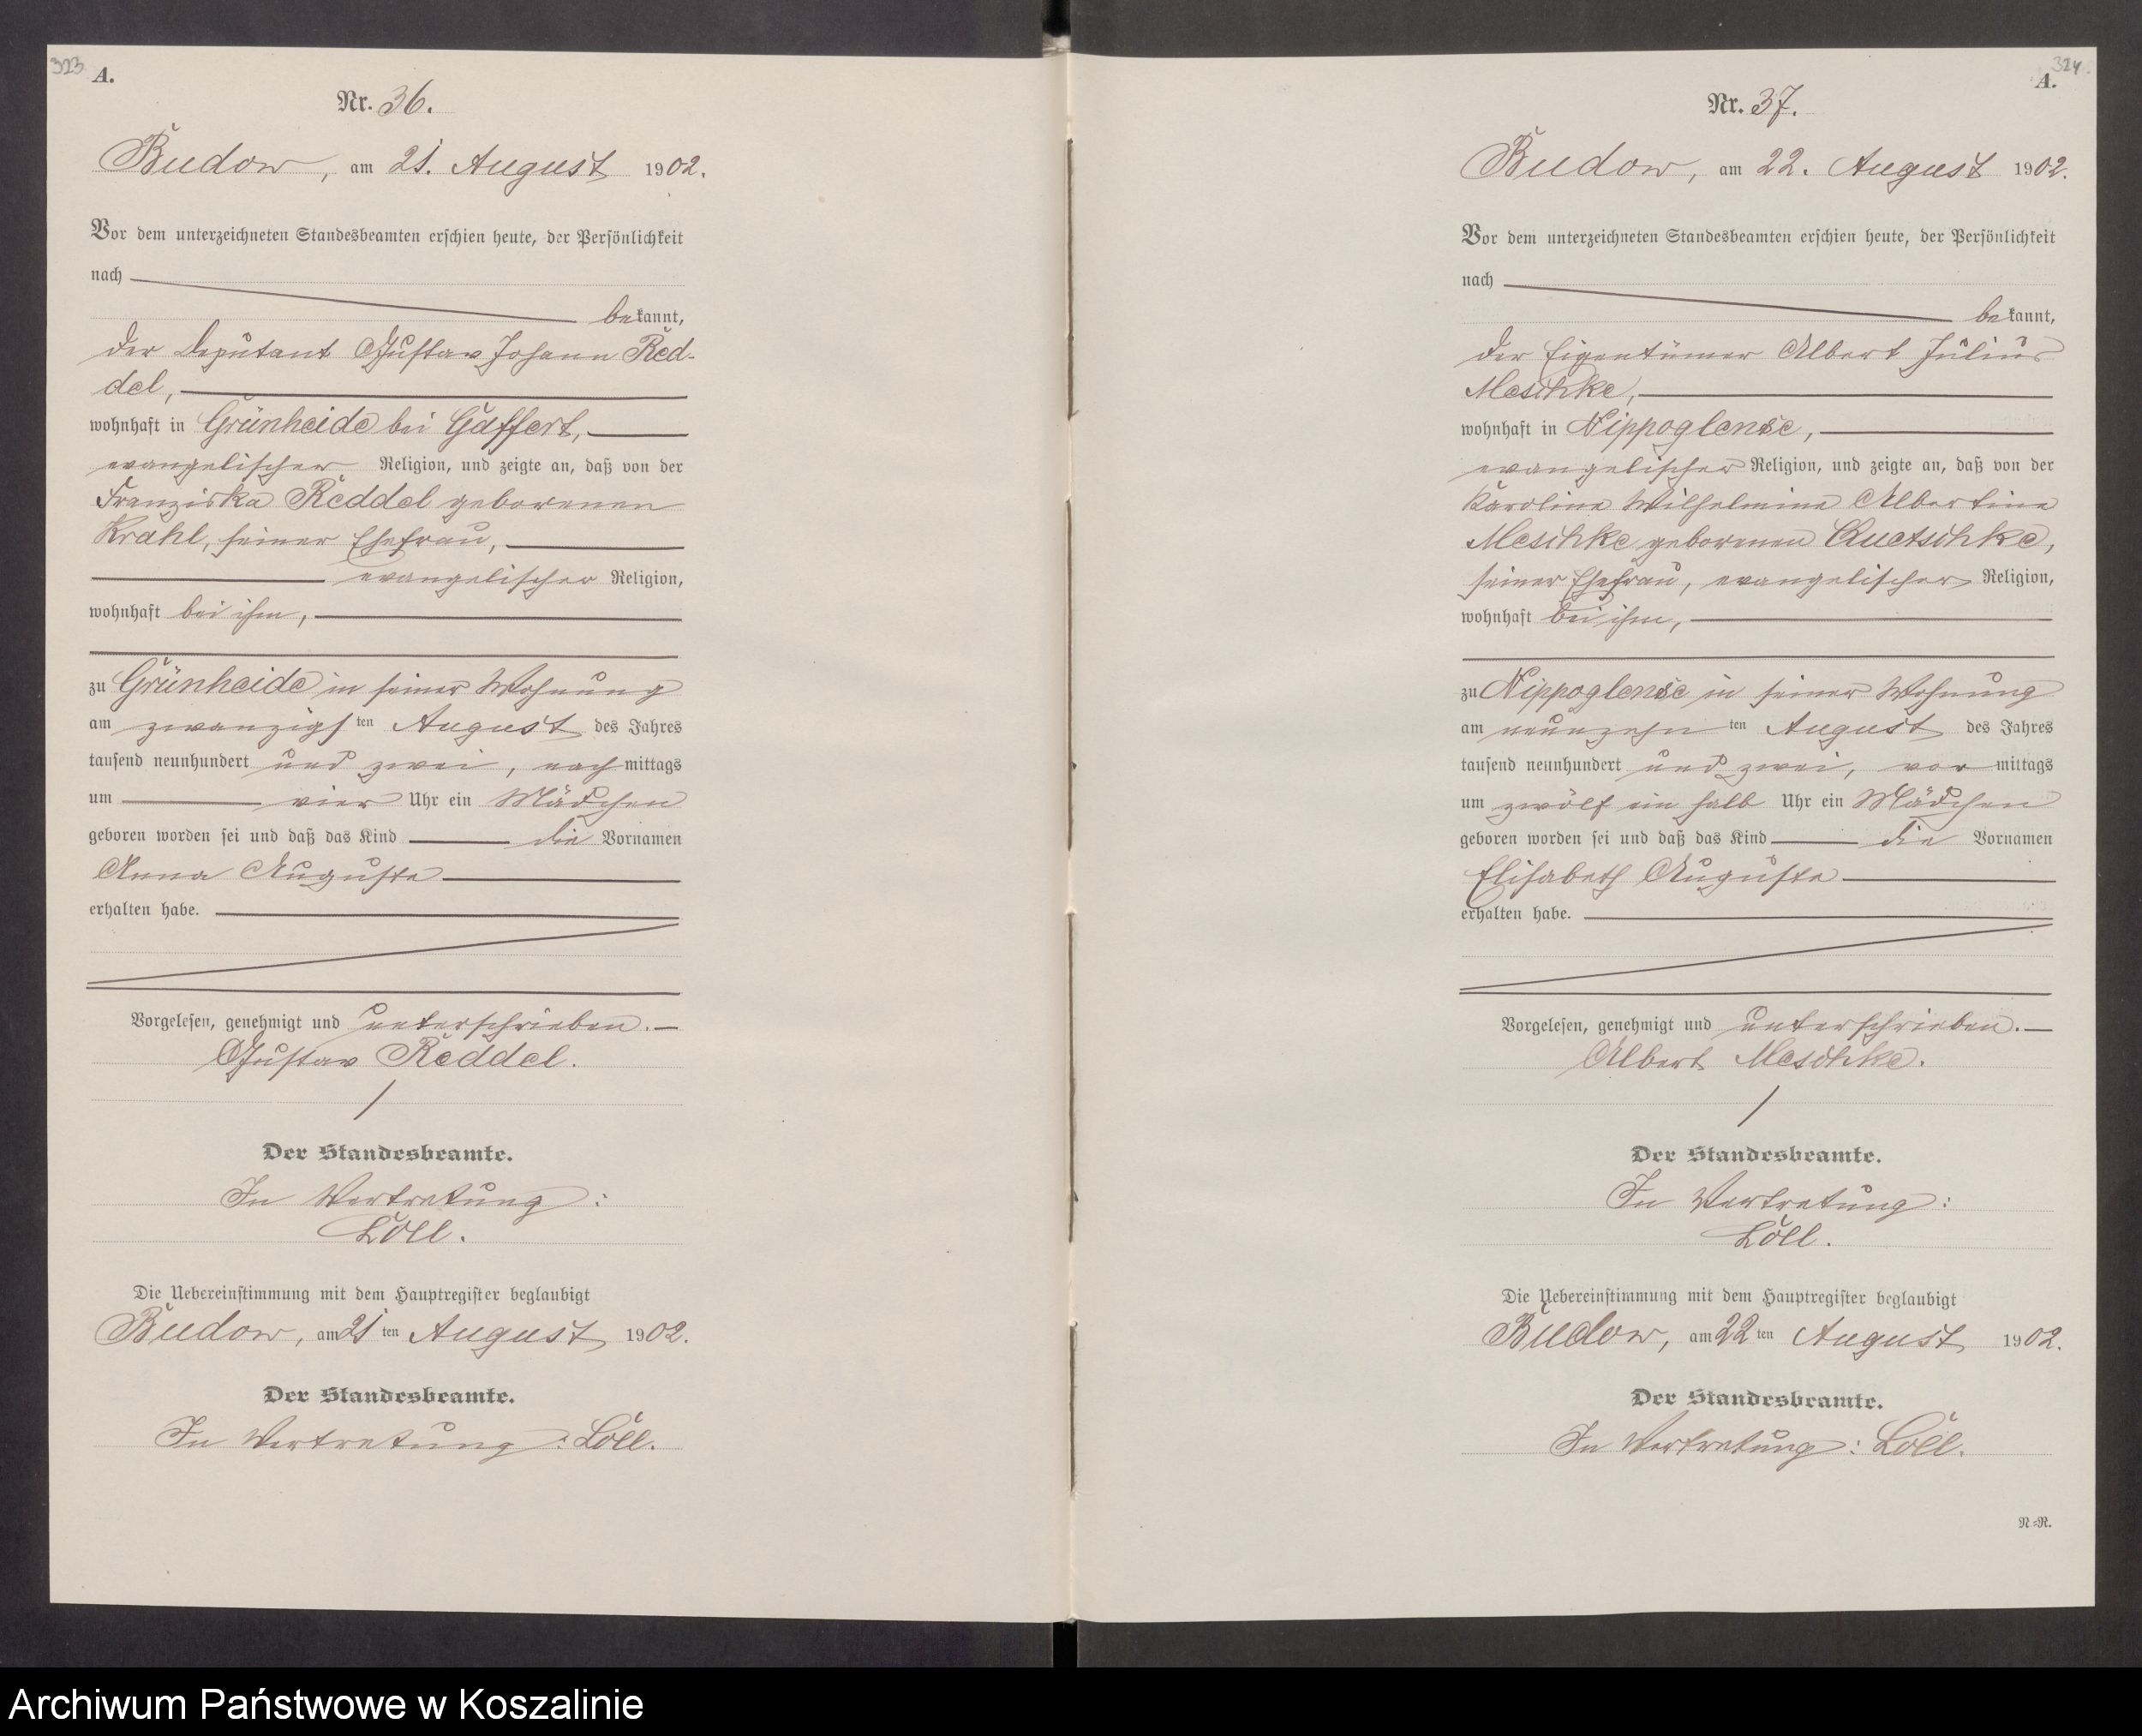 323
A.
Nr. 36.
Budow, am 21. August 1902.
Vor dem unterzeichneten Standesbeamten erschien heute, der Persönlichkeit
nach
bekannt,
der Deputant Gustav Johann Red-
del,
wohnhaft in Grünheide bei Gaffert,
evangelischer Religion, und zeigte an, daß von der
Franziska Reddel geborenen
Krahl, seiner Ehefrau,
evangelischer Religion,
wohnhaft bei ihm,
zu Grünheide in seiner Wohnung
am zwanzigsten August des Jahres
tausend neunhundert und zwei, nachmittags
um vier Uhr ein Mädchen
geboren worden sei und daß das Kind die Vornamen
Anna Auguste
erhalten habe.
Vorgelesen, genehmigt und unterschrieben.
Gustav Reddel.
Der Standesbeamte.
In Vertretung:
Löll.
Die Uebereinstimmung mit dem Hauptregister beglaubigt
Budow, am 21ten August 1902.
Der Standesbeamte.
In Vertretung: Löll.
324
A.
Nr. 37.
Budow, am 22. August 1902.
Vor dem unterzeichneten Standesbeamten erschien heute, der Persönlichkeit
nach
bekannt,
der Eigentümer Albert Julius
Meschke,
wohnhaft in Nippoglense,
evangelischer Religion, und zeigte an, daß von der
Karoline Wilhelmine Albertine
Meschke geborenen Quetschke,
seiner Ehefrau, evangelischer Religion,
wohnhaft bei ihm,
zu Nippoglense in seiner Wohnung
am neunzehnten August des Jahres
tausend neunhundert und zwei, vormittags
um zwölf ein halb Uhr ein Mädchen
geboren worden sei und daß das Kind die Vornamen
Elisabeth Auguste
erhalten habe.
Vorgelesen, genehmigt und unterschrieben.
Albert Meschke.
Der Standesbeamte.
In Vertretung:
Löll.
Die Uebereinstimmung mit dem Hauptregister beglaubigt
Budow, am 22ten August 1902.
Der Standesbeamte.
In Vertretung: Löll.
N=R.
Archiwum Państwowe w Koszalinie